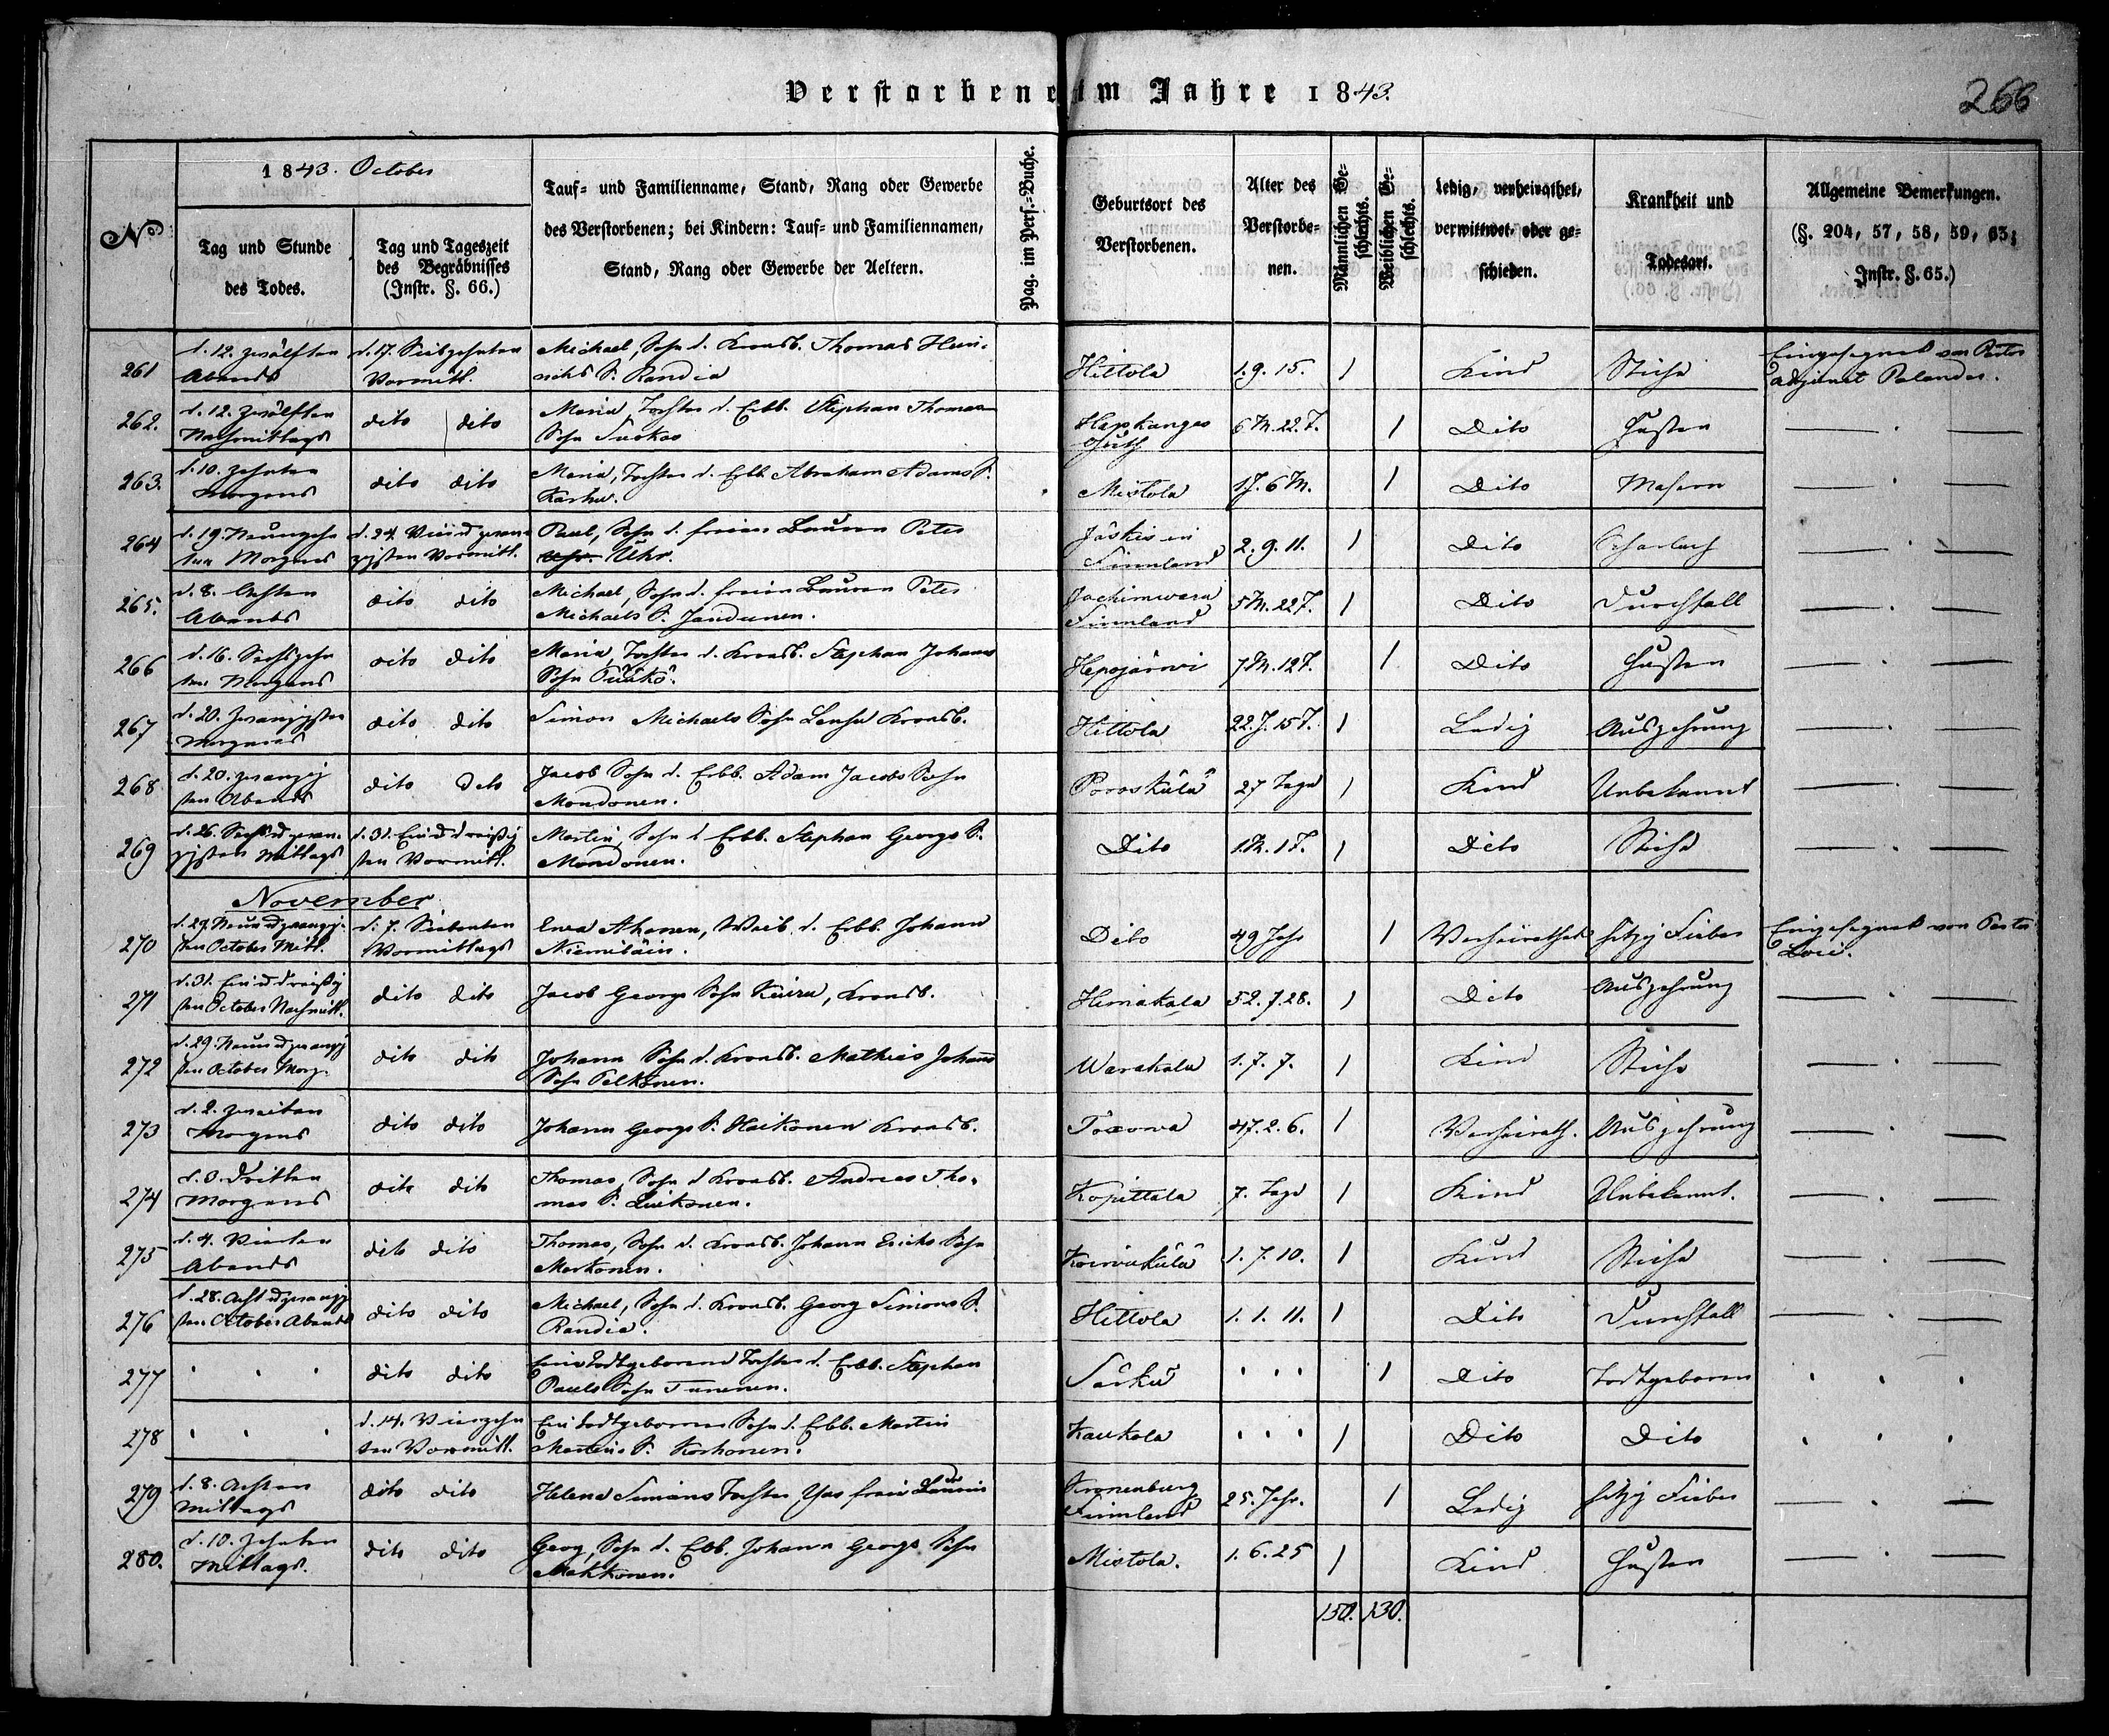 Verstorbene im Jahre 1843.
266
No
1843. October
Tag und Stunde
des Todes.
Tag und Tageszeit
des Begräbnisses
(Instr. §. 66.)
Tauf- und Familienname, Stand, Rang oder Gewerbe
des Verstorbenen; bei Kindern: Tauf- und Familiennamen,
Stand, Rang oder Gewerbe der Aeltern.
Pag. im Pers.-Buche.
Geburtsort des
Verstorbenen.
Alter des
Verstorbe-
nen.
Männlichen Ge-
schlechts.
Weiblichen Ge-
schlechts.
ledig, verheirathet,
verwittwet, oder ge-
schieden.
Krankheit und
Todesart.
Allgemeine Bemerkungen.
(§. 204, 57, 58, 59, 63;
Instr. §. 65.)
261 d. 12. zwölften d. 17. Siebzehnten Michael, Sohn d. Kronsb. Thomas Hein-
Abends Vormitt. richs S. Randia Hittola 1. 9. 15. 1 Kind Stiche Eingesegnet von Pastor
adjunct Palander.
262. d. 12. zwölften dito dito Maria, Tochter d. Erbb. Stephan Thomas
Nachmittags Sohn Suokas Hapkanges 6 M. 22. T. 1 Dito Husten
Guth
263. d. 10. zehnten dito dito Maria, Tochter d. Erbb. Abraham Adams S.
Morgens Karhu. Mistola 1 J. 6 M. 1 Dito Masern
264 d. 19. Neunzehn d. 24. Vierundzwan- Paul, Sohn d. freien Bauern Peter
ten Morgens zigsten Vormitt. Uhr. Jäskis in 2. 9. 11. 1 Dito Scharlach
Finnland
265. d. 8. Achten dito dito Michael, Sohn d. freien Bauern Peter
Abends Michaels S. Jandunen. Jachimwara 5 M. 22 T. 1 Dito Durchfall
Finnland
266 d. 16. Sechszehn dito dito Maria, Tochter d. Kronsb. Stephan Johanns
ten Morgens Sohn Hepojärwi 7 M. 12 T. 1 Dito Husten
267 d. 20. Zwanzigsten dito dito Simon Michaels Sohn Kronsb.
Morgens Hittola 22. J. 15 T. 1 Ledig Auszehrung
268 d. 20. zwanzig dito dito Jacob Sohn d. Erbb. Adam Jacobs Sohn
sten Abends Mondonen. Poroskülä 27 Tage 1 Kind Unbekannt
269 d. 26. Sechsundzwan- d. 31. Einunddreißig Martin, Sohn d. Erbb. Stephan Georgs S.
zigsten Mittags sten Vormitt. Mondonen. Dito 1 M. 1 T. 1 Dito Stiche
November
270 d. 29. Neunundzwanzig- d. 7. Siebenten Ahonen, Weib d. Erbb. Johann
sten October Mitt. Vormittags Niemiläin. Dito 49 Jahr 1 Verheirathet hitzig Fieber Eingesegnet von Pastor
271 d. 31. Einunddreißig dito dito Jacob Georgs Sohn Kiuru, Kronsb.
sten October Nachmitt. Himakala 52. 7. 28. 1 Dito Auszehrung
272 d. 29. Neunundzwanzig dito dito Johann Sohn d. Kronsb. Mathias Johanns
sten October Morg. Sohn Pelkonen. Warakala 1. 7. 7. 1 Kind Stiche
273 d. 2. zweiten dito dito Johann Georgs S. Haikonen Kronsb.
Morgens Toxowa 47. 2. 6. 1 Verheirath. Auszehrung
274 d. 3. dritten dito dito Thomas, Sohn d. Kronsb. Andreas Tho-
Morgens mas S. Kopittala 7. Tage 1 Kind Unbekannt.
275 d. 4. Vierten dito dito Thomas, Sohn d. Kronsb. Johann Erichs Sohn
Abends Markonen. Koirvakülä 1. 7. 10. 1 Kind Stiche
276 d. 28. Achtundzwanzig dito dito Michael, Sohn d. Kronsb. Georg Simons S.
sten October Abends Randia. Hittola 1. 1. 11. 1 Dito Durchfall
277 dito dito Eine todtgeborene Tochter d. Erbb. Stephan
Pauls Sohn Turunen. Särki 1 Dito Todtgeboren
278 d. 14. Vierzehn Ein todtgeborener Sohn d. Erbb. Martin
ten Vormitt. Martins S. Korhonen. Kaukola 1 Dito Dito
279 d. 8. Achten dito dito Helena Simons Tochter freie Bäurin
Mittags Kronenburg 25. Jahr. 1 Ledig hitzig Fieber
Finnland
280. d. 10. Zehnten dito dito Georg, Sohn d. Erbb. Johann Georgs Sohn
Mittags. Makkonen. Mistola. 1. 6. 25 1 Kind Husten
150. 130.